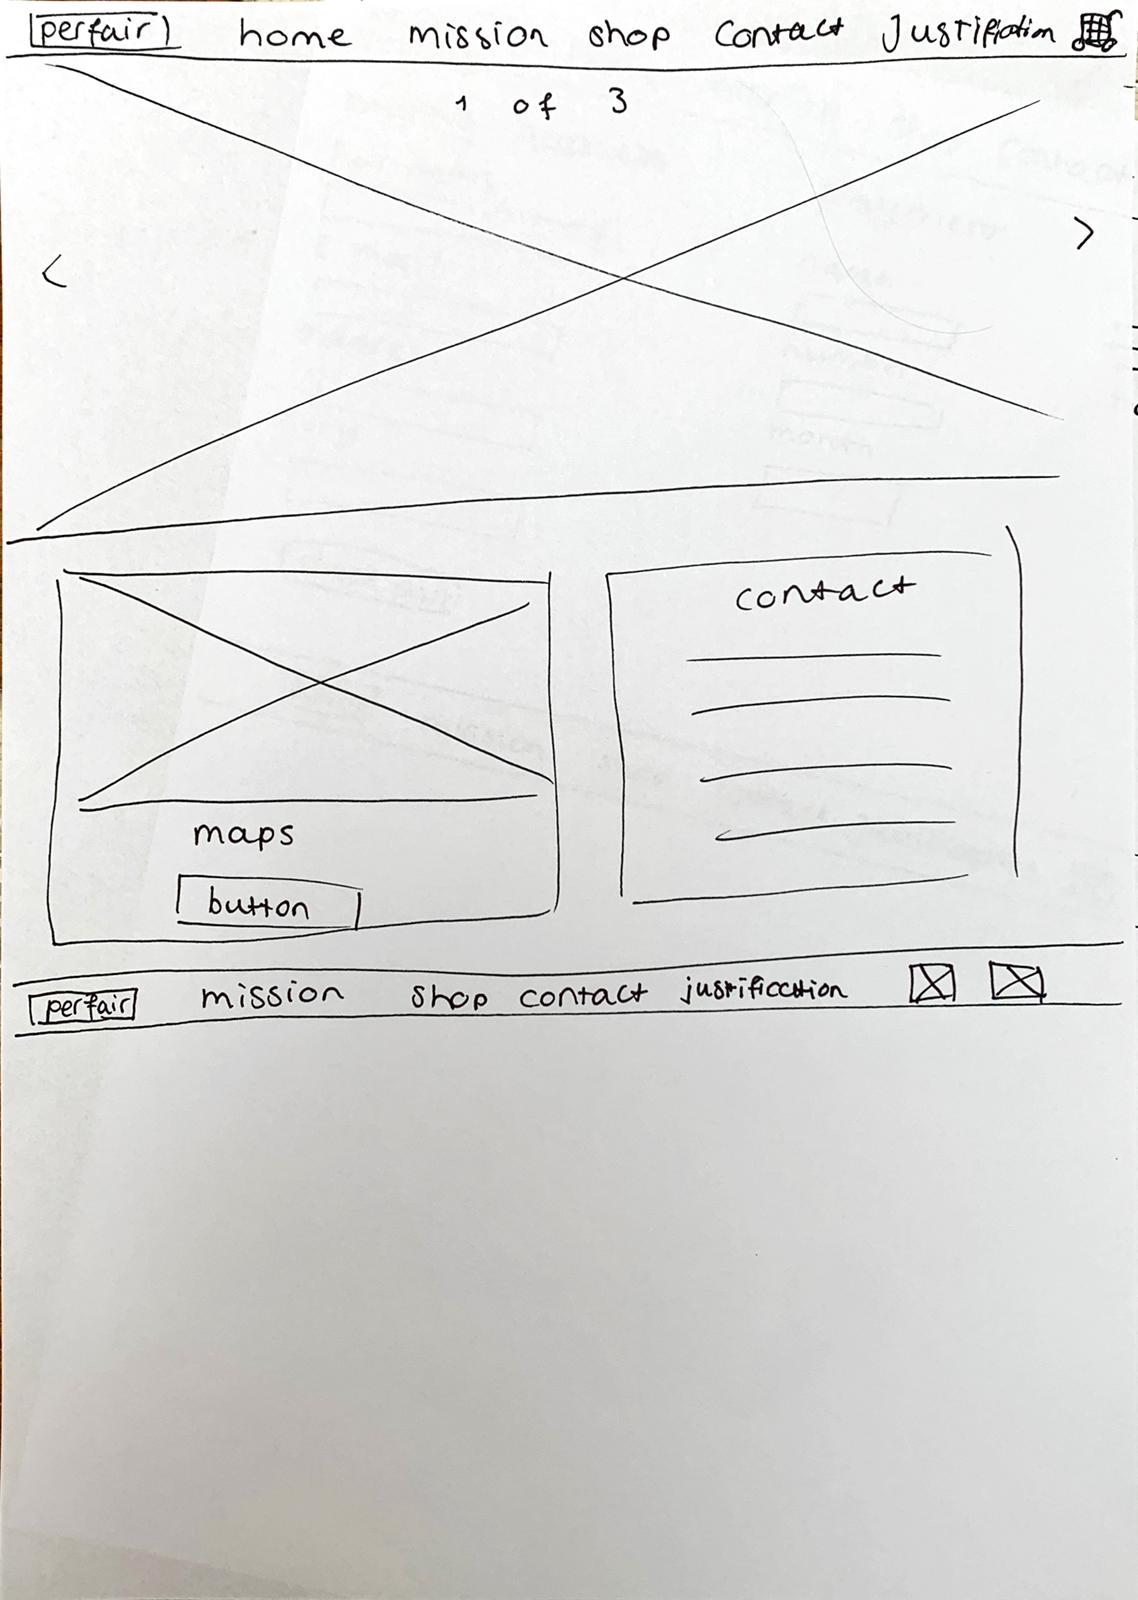 perfair home mission shop contact Justification
1 of 3
< >
contact
maps
button
perfair mission shop contact justification